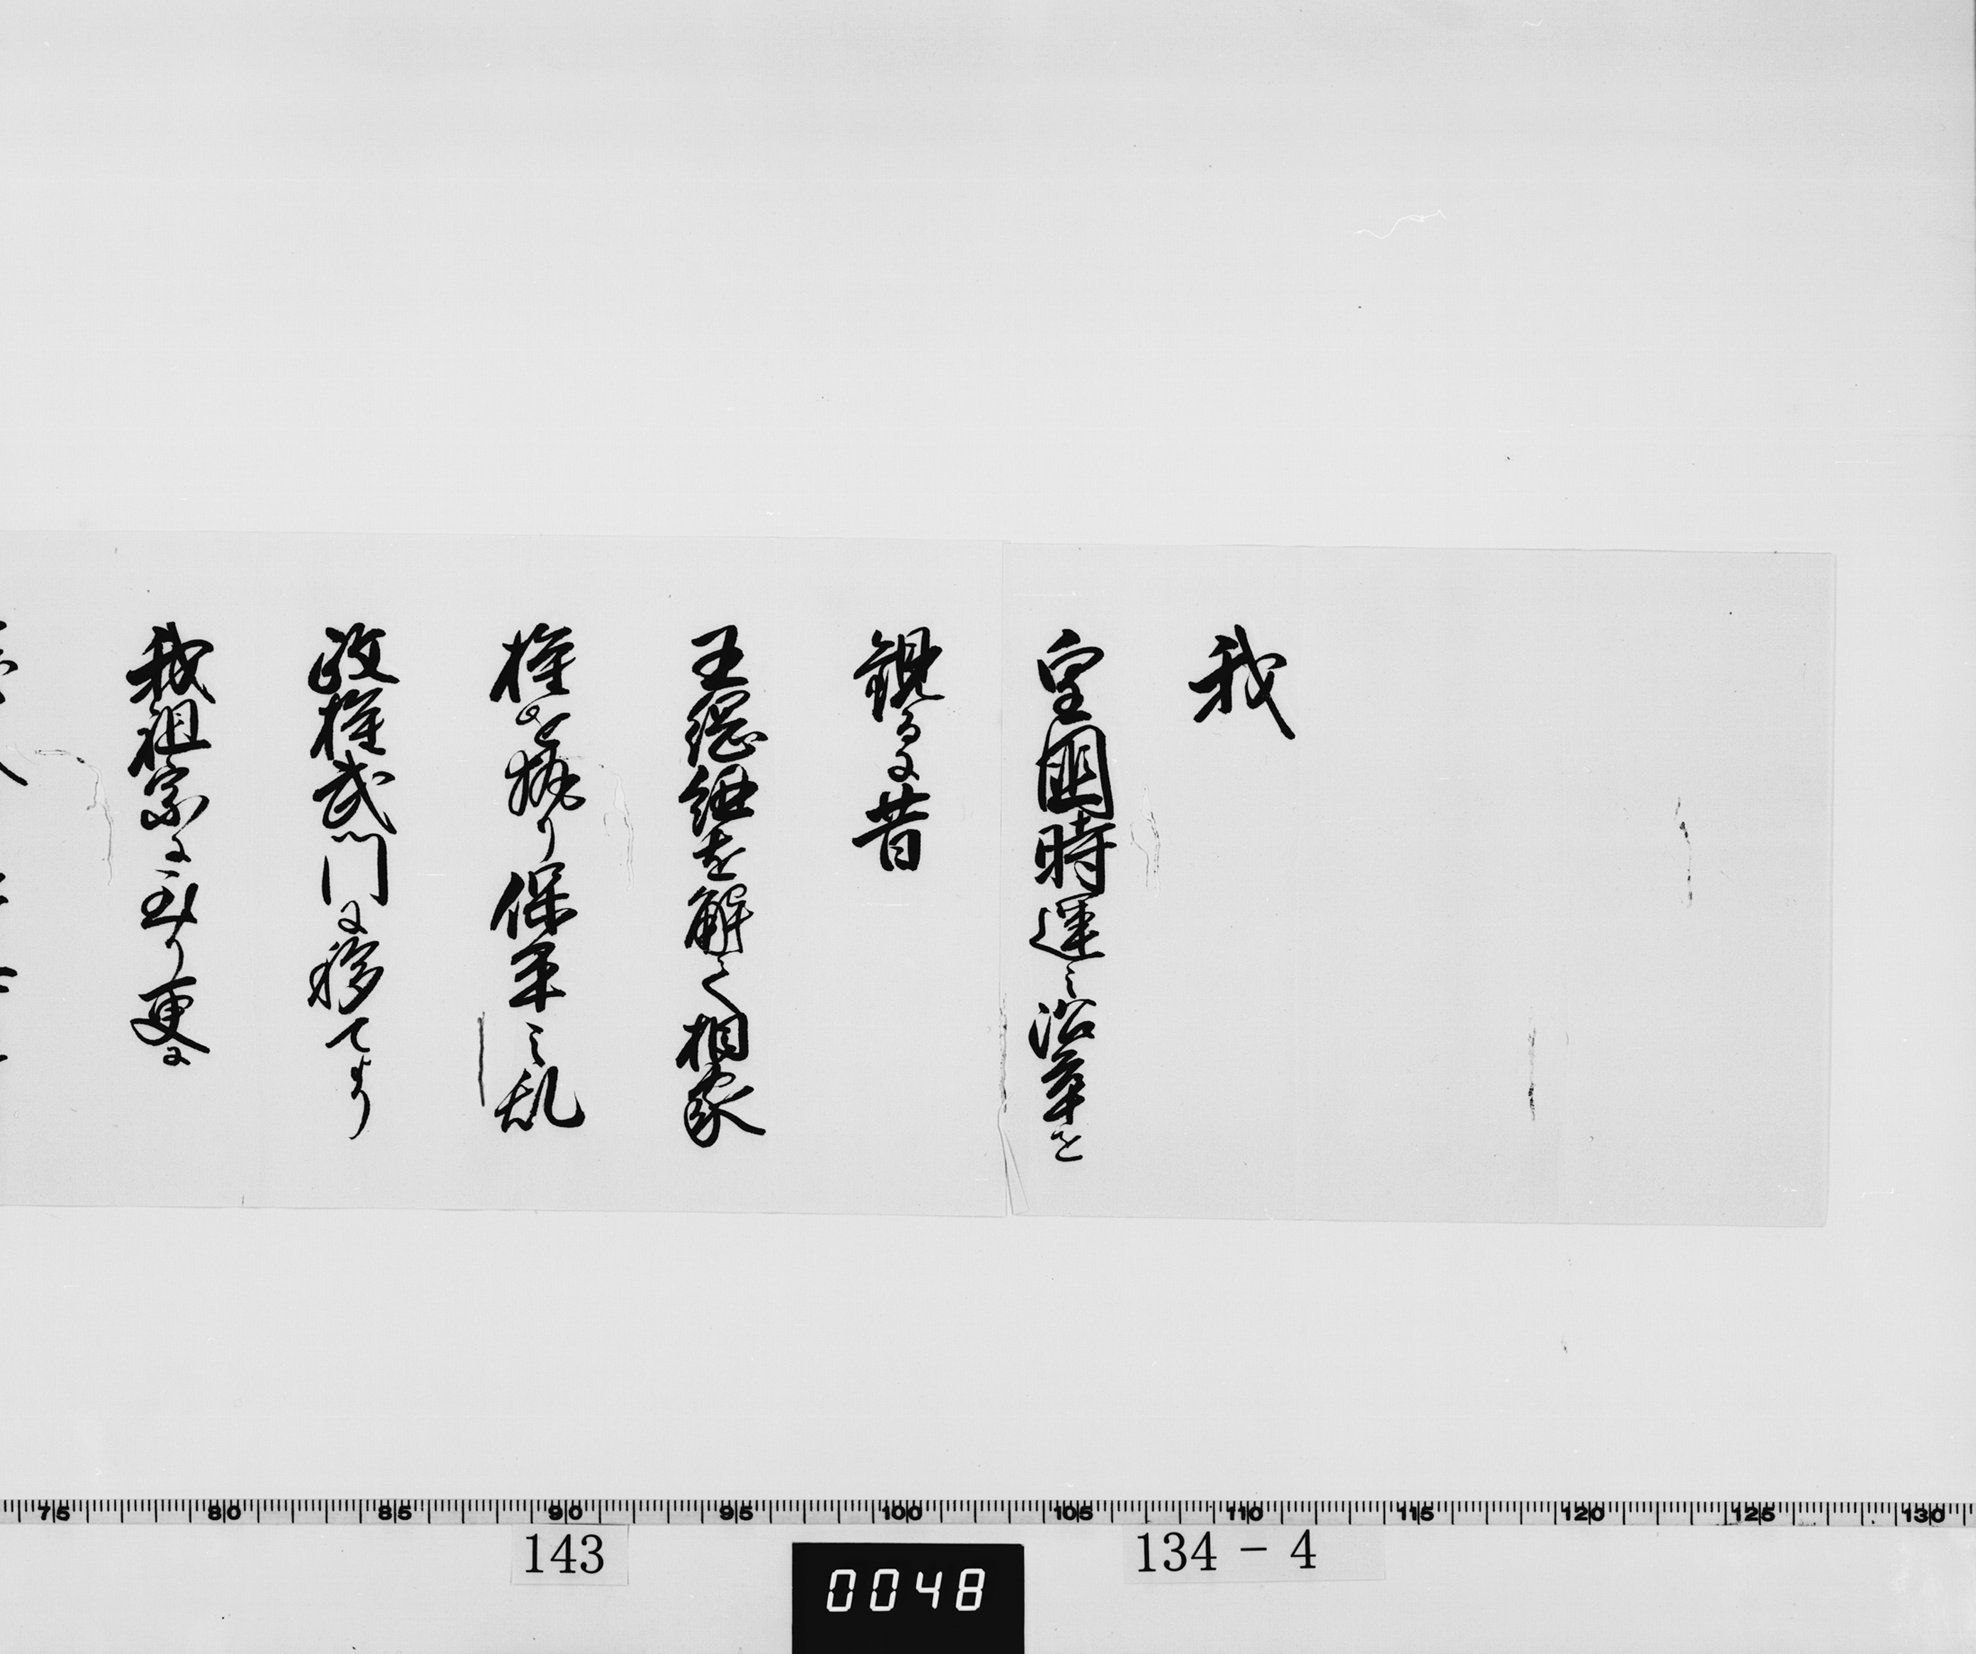 我
皇国時運之沿革を
観るに昔
王綱紐を解て相家
権を執り保平之乱
政権武門に移てより
我祖宗に至り更に
75 80 85 90 95 100 105 110 115 120 125 130
143
134-4
0048